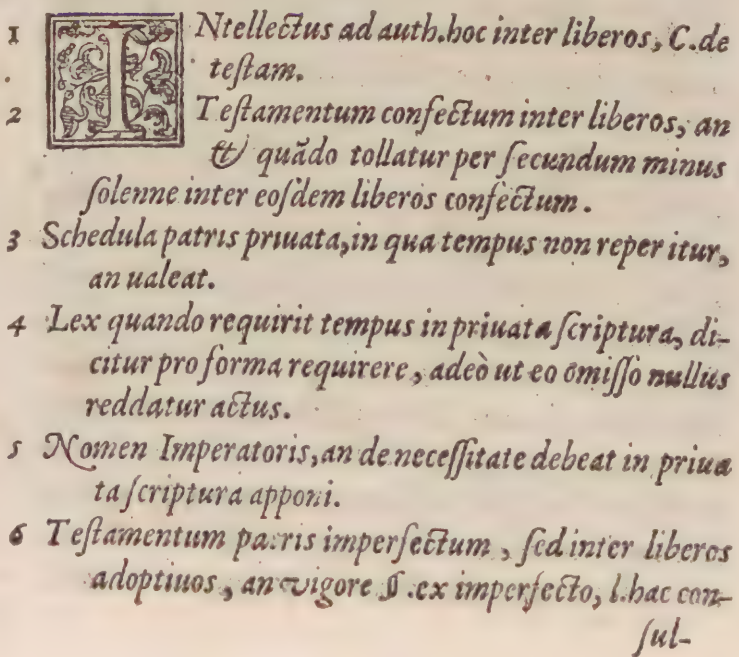 1 INtellectus ad auth.hoc inter liberos, C.de
testam.
2 Testamentum confectum inter liberos, an
& quãdo tollatur per secundum minus
solenne inter eosdem liberos confectum.
3 Schedula patris priuata, in qua tempus non reperitur,
an ualeat.
4 Lex quando requirit tempus in priuata scriptura, di-
citur pro forma requirere, adeò ut eo omisso nullus
reddatur actus.
5 Nomen Imperatoris, an de necessitate debeat in priua
ta scriptura apponi.
6 Testamentum patris imperfectum, sed inter liberos
adoptiuos, an vigore §.ex imperfecto, l.hac con-
sul-